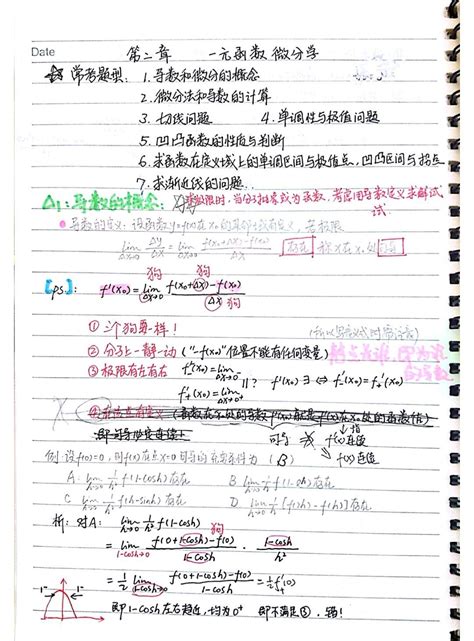 Date
第二章 一元函数微分学
常考题型: 1. 导数和微分的概念
2. 微分法和导数的计算
3. 切线问题 4. 单调性与极值问题
5. 凹凸函数的性质与判断
6. 求函数在定义域上的单调区间与极值点, 凹凸区间与拐点
7. 求渐近线的问题.
△1: 导数的概念:
导数的定义: 设函数y=f(x)在x₀的某邻域有定义, 若极限
lim Δx→0 Δy/Δx = lim Δx→0 (f(x₀+Δx)-f(x₀))/Δx 存在 称 x在x₀处可导
狗 狗
[ps]: f'(x₀) = lim Δx→0 (f(x₀+Δx)-f(x₀))/Δx 狗
① 三个狗要一样!
② 分子上一静一动 ("-f(x₀)"位置不能有任何变量)
③ 极限有左有右 f'₋(x₀) = lim Δx→0⁻ ‖? f'(x₀) ∃ ⇔ f'₋(x₀)=f'₊(x₀)
f'₊(x₀) = lim Δx→0⁺
f(x)连续
例: 设f(0)=0, 则f(x)在点x=0可导的充要条件为 (B)
A. lim h→0 1/h² f(1-cosh)存在 B. lim h→0 1/h f(1-eʰ)存在
C. lim h→0 1/h² f(h-sinh)存在 D. lim h→0 1/h [f(2h)-f(h)]存在
析: 对A: lim h→0 1/h² f(1-cosh) 狗
= lim 1-cosh→0 (f(0+1-cosh)-f(0))/(1-cosh) · (1-cosh)/h²
= 1/2 lim 1-cosh→0 (f(0+1-cosh)-f(0))/(1-cosh) = 1/2 f'₊(0)
即 1-cosh左右趋近, 均为0⁺ 即不满足③. 错!